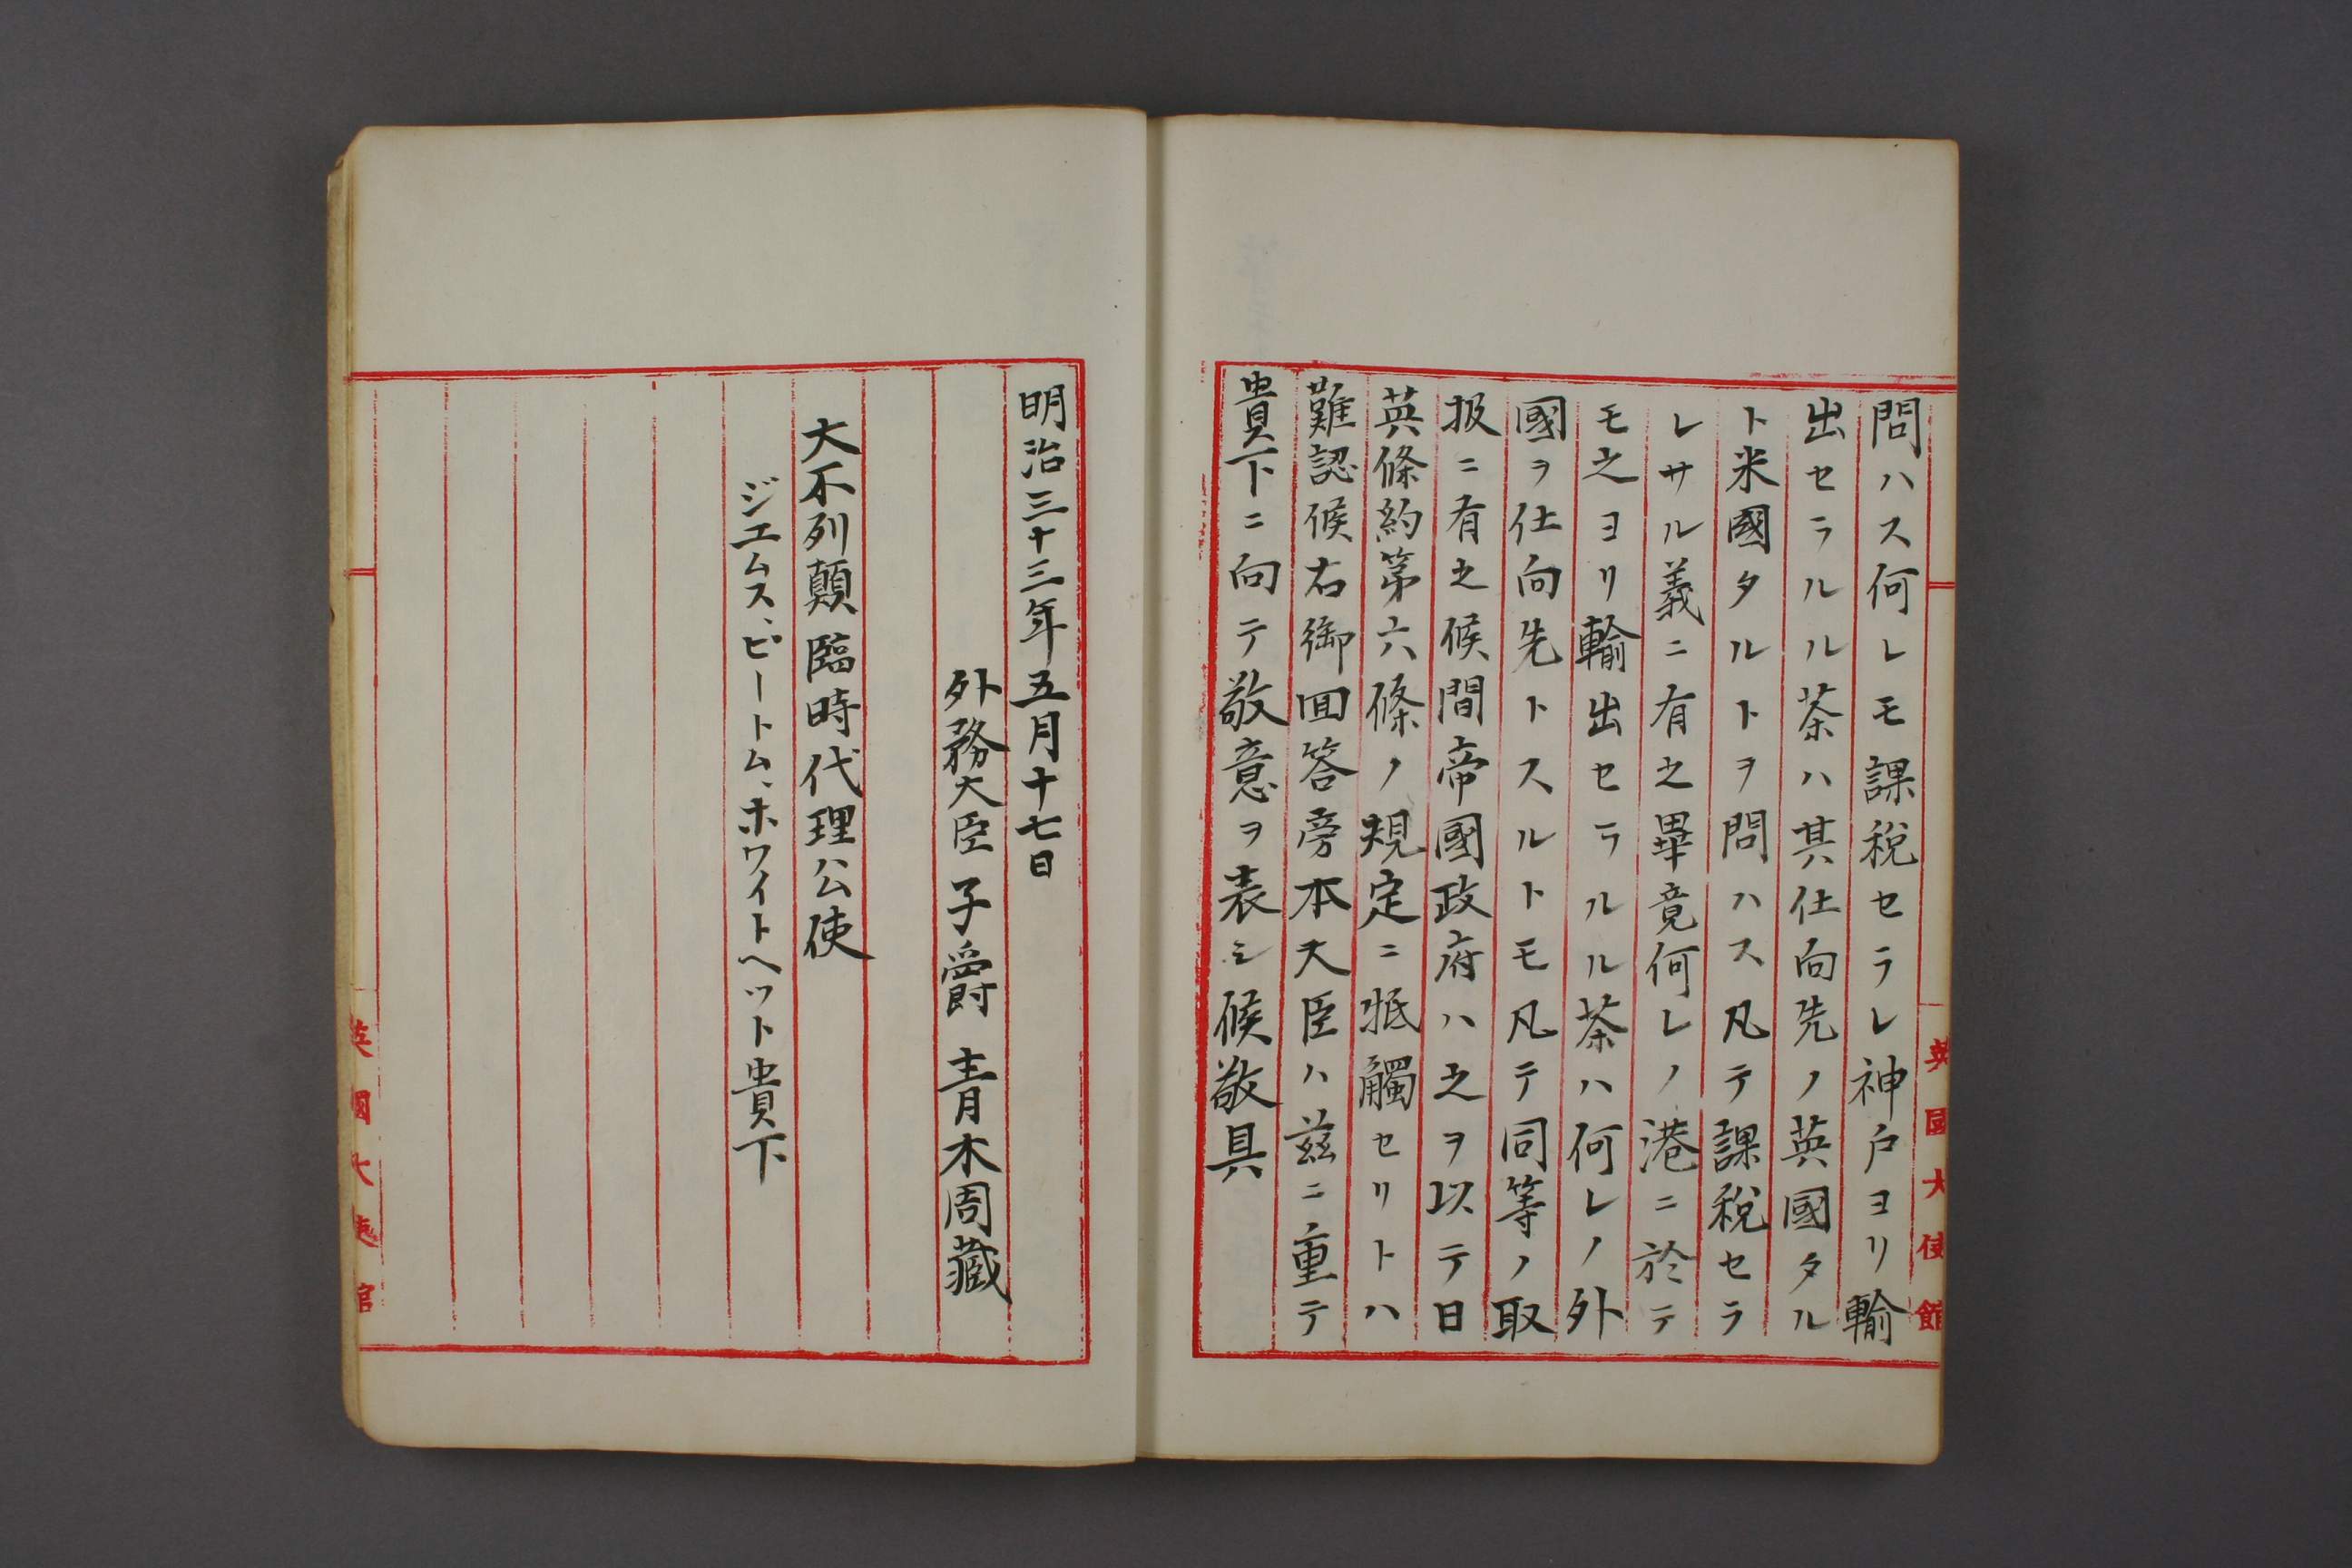 問ハス何レモ課税セラレ神戸ヨリ輸
出セラルル茶ハ其仕向先ノ英國タル
ト米國タルトヲ問ハス凡テ課税セラ
レサル義ニ有之畢竟何レノ港ニ於テ
モ之ヨリ輸出セラルル茶ハ何レノ外
國ヲ仕向先トスルトモ凡テ同等ノ取
扱ニ有之候間帝國政府ハ之ヲ以テ日
英條約第六條ノ規定ニ牴觸セリトハ
難認候右御回答旁本大臣ハ茲ニ重テ
貴下ニ向テ敬意ヲ表シ候敬具
英國大使館
明治三十三年五月十七日
外務大臣子爵青木周藏
大不列顛臨時代理公使
ジエムス、ビートム、ホワイトヘット貴下
英國大使館